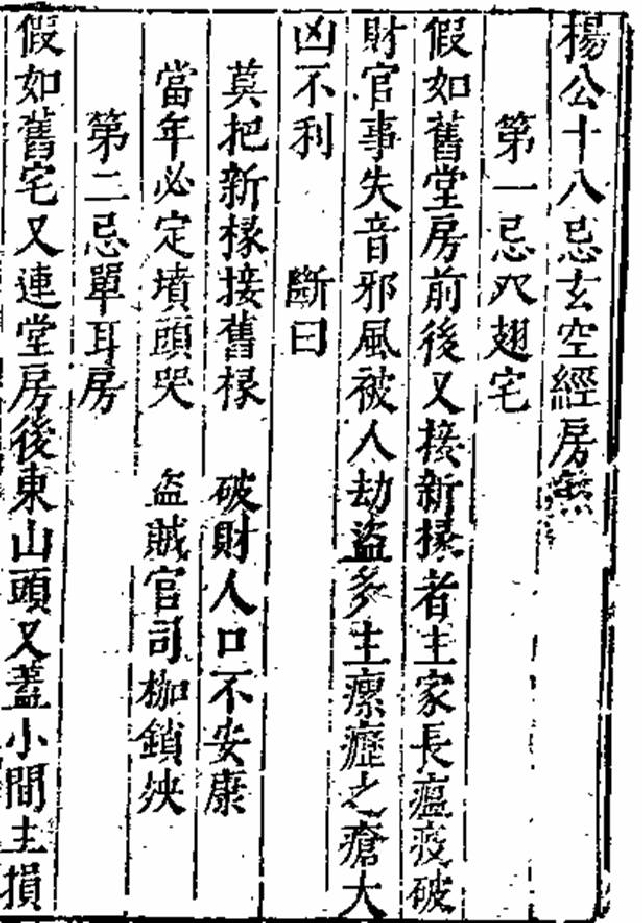 楊公十八忌玄空經房無
第一忌㸚翅宅
假如舊堂房前後又接新椽者主家長瘟疫破
財官事失音邪風被人劫盜多主瘰癧之瘡大
凶不利　斷曰
莫把新椽接舊椽　破財人口不安康
當年必定墳頭哭　盜賊官司枷鎖殃
第二忌單耳房
假如舊宅又連堂房後東山頭又蓋小間主損